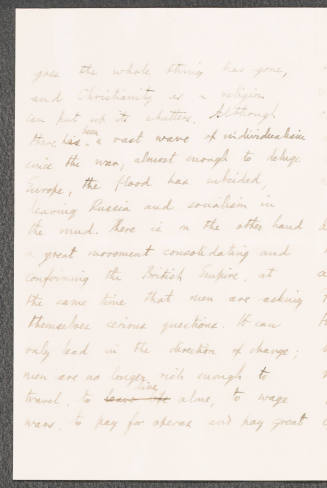 goes the whole thing has gone,
and Christianity as a religion
can put up its shutters. Although
there has been a vast wave of individualism
since the war, almost enough to deluge
Europe, the flood has subsided,
leaving Russia and socialism in
the mud. There is on the other hand
a great movement consolidating and
confirming the British Empire, at
the same time that men are asking
themselves serious questions. It can
only lead in the direction of change;
men are no longer rich enough to
travel, to live alone, to wage
wars, to pay for operas and pay great